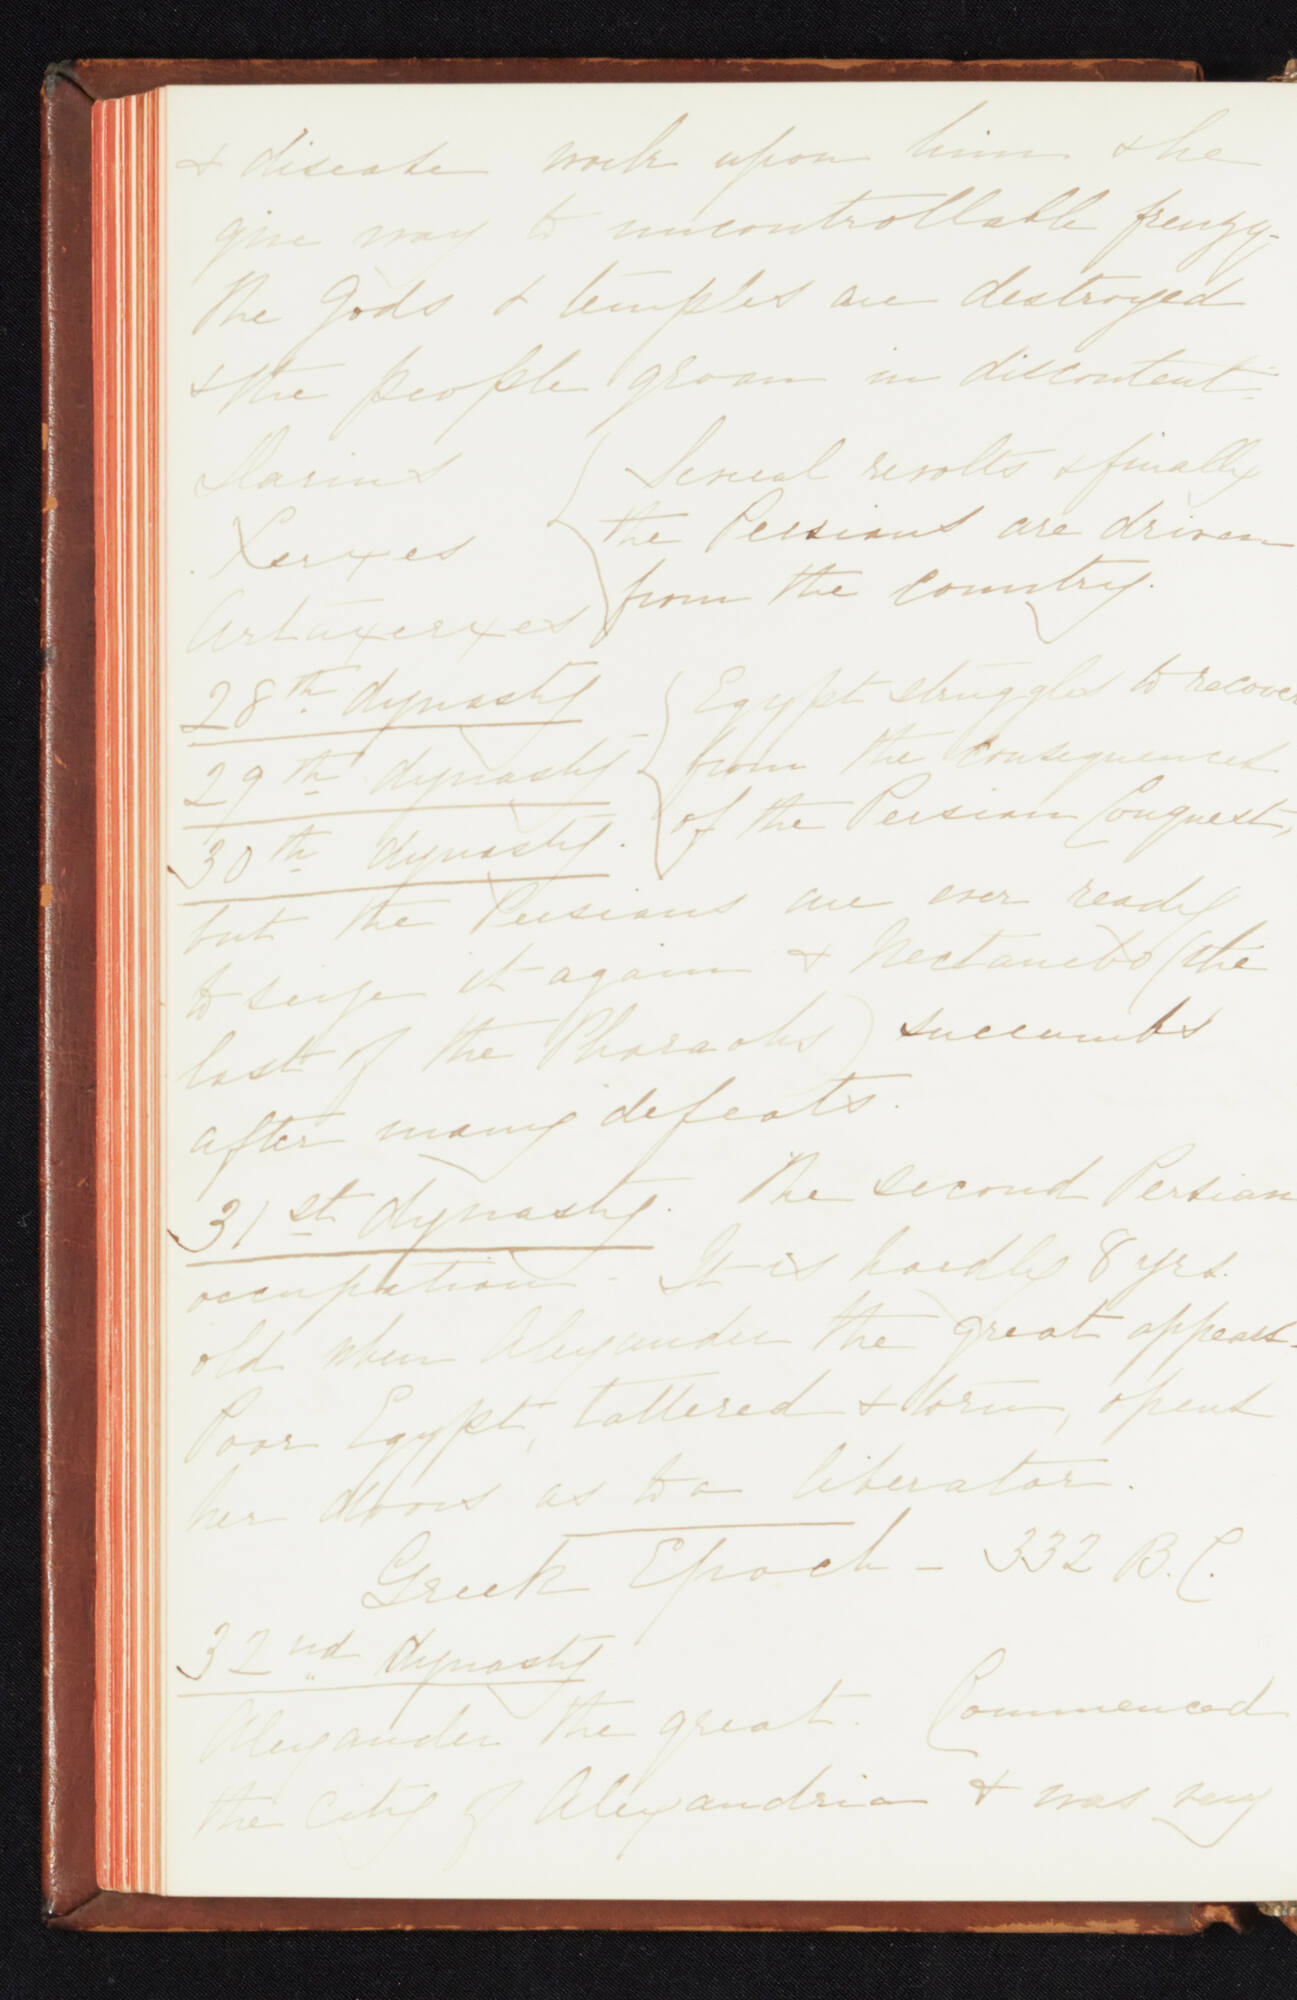 & disease work upon him & he
give way to uncontrollable frenzy -
The Gods & temples are destroyed
& the people groan in discontent -
Darius { Several revolts & finally
Xerxes the Persians are driven
Artaxerxes from the country.
28th dynasty { Egypt struggles to recover
29th dynasty from the consequences
30th dynasty. of the Persian Conquest,
but the Persians are ever ready
to seize it again & Nectanebo (the
last of the Pharaohs) succumbs
after many defeats.
31st dynasty. The second Persian
occupation - It is hardly 8 yrs.
old when Alexander the great appears -
Poor Egypt, tattered & torn, opens
her doors as to a liberator.
Greek Epoch - 332 B.C.
32nd dynasty
Alexander the great. Commenced
the city of Alexandria & was very